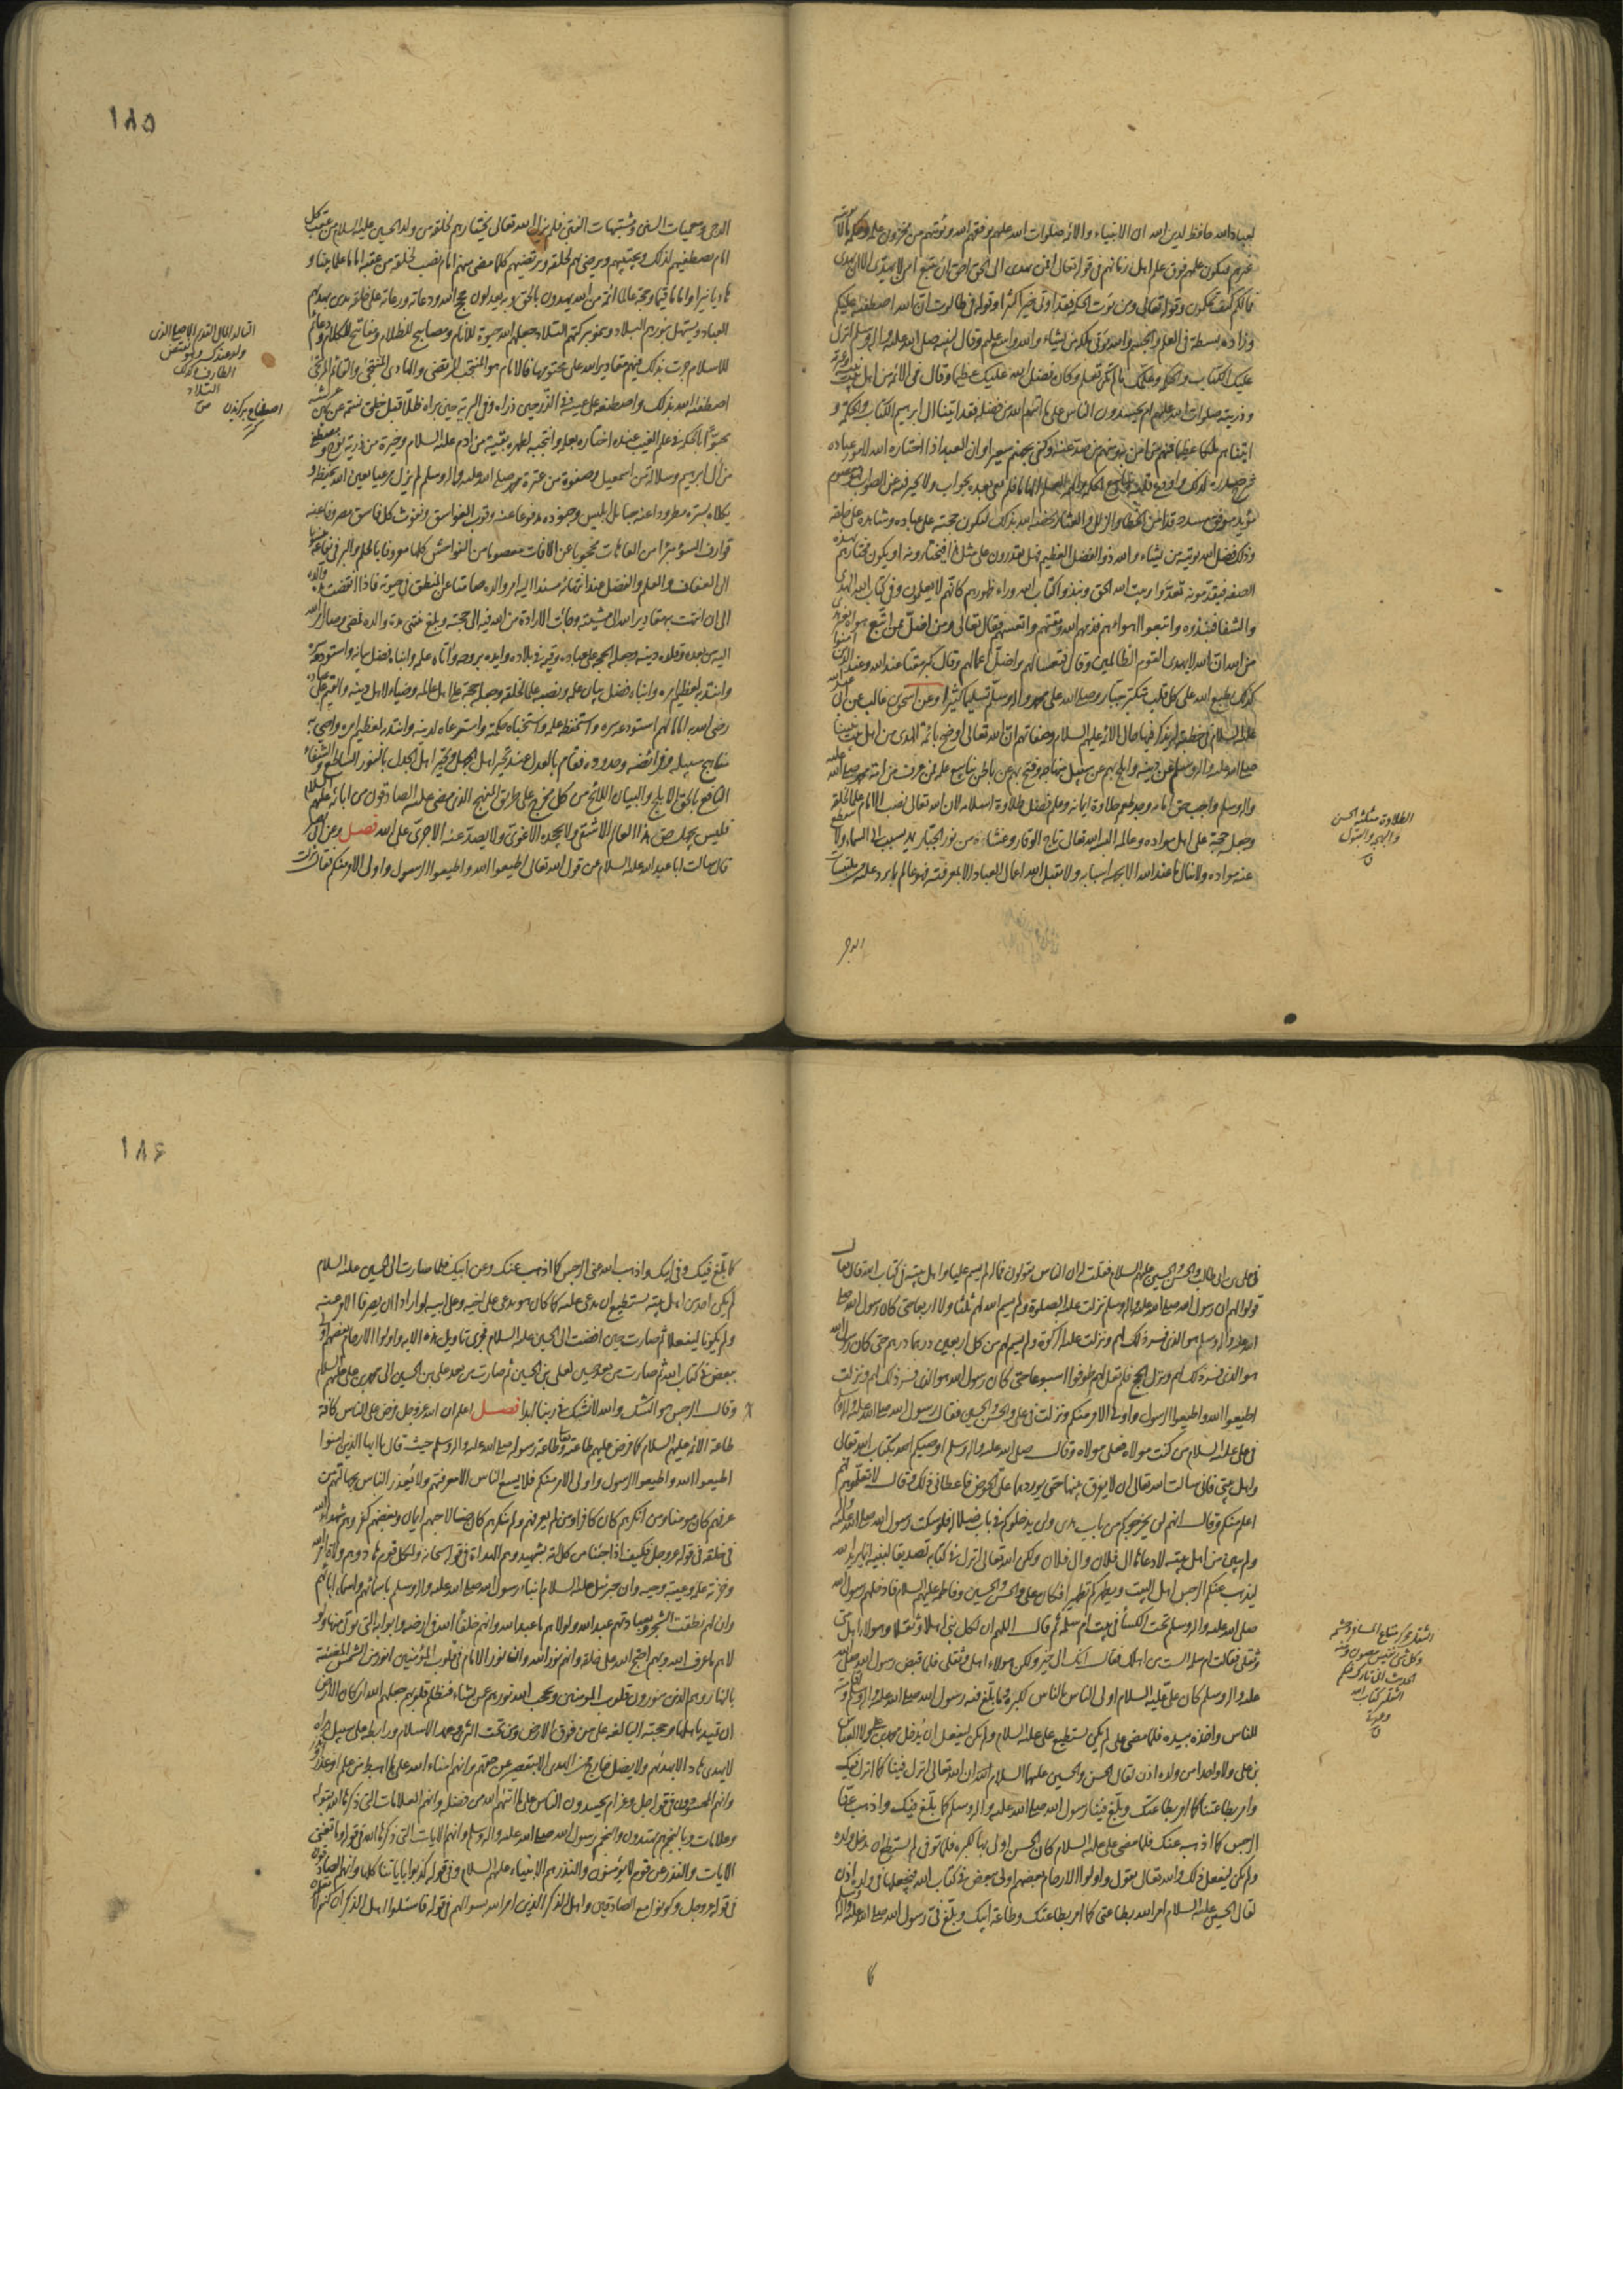 لعباد الله حافظ لدين الله ان الانبياء والائمة صلوات الله عليهم يوفقهم الله ويؤتيهم من مخزون علمه وحكمه ما لا يؤتيه
غيرهم فيكون علمهم فوق علم اهل زمانهم في قوله تعالى افمن يهدى الى الحق احق ان يتبع امن لا يهدى الا ان يهدى
فما لكم كيف تحكمون وقوله تعالى ومن يؤت الحكمة فقد اوتى خيرا كثيرا وقوله في طالوت ان الله اصطفيه عليكم
وزاده بسطة في العلم والجسم والله يؤتى ملكه من يشاء والله واسع عليم وقال لنبيه صلى الله عليه وآله وسلم انزل
عليك الكتاب والحكمة وعلمك ما لم تكن تعلم وكان فضل الله عليك عظيما وقال في الائمة من اهل بيت نبيه وعترته
وذريته صلوات الله عليهم ام يحسدون الناس على ما اتيهم الله من فضله فقد اتينا ال ابرهيم الكتاب والحكمة و
اتيناهم ملكا عظيما فمنهم من امن به ومنهم من صد عنه وكفى بجهنم سعيرا وان العبد اذا اختاره الله لامور عباده
شرح صدره لذلك واودع قلبه ينابيع الحكمة والهمه العلم الهاما فلم يعى بعده بجواب ولا يحير فيه عن الصواب فهو معصوم
مؤيد موفق مسدد قد امن من الخطايا والزلل والعثار يخصه الله بذلك ليكون حجته على عباده وشاهده على خلقه
وذلك فضل الله يؤتيه من يشاء والله ذو الفضل العظيم فهل يقدرون على مثل هذا فيختارونه او يكون مختارهم بهذه
الصفة فيقدمونه تعدوا وبيت الله الحق ونبذوا كتاب الله وراء ظهورهم كانهم لا يعلمون وفي كتاب الله الهدى
والشفاء فنبذوه واتبعوا اهواءهم فذمهم الله ومقتهم واتعسهم فقال تعالى ومن اضل ممن اتبع هواه بغير هدى
من الله ان الله لا يهدى القوم الظالمين وقال فتعسا لهم واضل اعمالهم وقال كبر مقتا عند الله وعند الذين امنوا
كذلك يطبع الله على كل قلب متكبر جبار وصلى الله على محمد وآله وسلم تسليما كثيرا وعن اسحق بن غالب عن ابى عبد الله
عليه السلام في خطبة له يذكر فيها حال الائمة عليهم السلام وصفاتهم ان الله تعالى اوضح بائمة الهدى من اهل بيت نبينا
صلى الله عليه وآله وسلم عن دينه وابلج بهم عن سبيل منهاجه وفتح بهم عن باطن ينابيع علمه فمن عرف من امة محمد صلى الله عليه
وآله وسلم واجب حق امامه وجد طعم حلاوة ايمانه وعلم فضل طلاوة اسلامه لان الله تعالى نصب الامام علما لخلقه
وجعله حجة على اهل مواده وعالمه البسه الله تعالى تاج الوقار وغشاه من نور الجبار يمد بسبب الى السماء ولا ينقطع
عنه مواده ولا ينال ما عند الله الا بجهة اسبابه ولا يقبل الله اعمال العباد الا بمعرفته فهو عالم بما يرد عليه من ملتبسات
الطلاوة مثلثة الحسن
والبهجة والقبول
ق
الدجى
١٨٥
الدجى ومعميات السنن ومشتبهات الفتن فلم يزل الله تعالى يختارهم لخلقه من ولد الحسين عليه السلام من عقب كل
امام يصطفيهم لذلك ويجتبيهم ويرضى بهم لخلقه ويرتضيهم كلما مضى منهم امام نصب لخلقه من عقبه اماما علما بينا و
هاديا نيرا واماما قيما وحجة عالما ائمة من الله يهدون بالحق وبه يعدلون حجج الله ودعاته ورعاته على خلقه يدين بهديهم
العباد ويستهل بنورهم البلاد وينمو ببركتهم التلاد جعلهم الله حيوة للانام ومصابيح للظلام ومفاتيح للكلام ودعائم
للاسلام جرت بذلك فيهم مقادير الله على محتومها فالامام هو المنتجب المرتضى والهادى المنتجى والقائم المرتجى
اصطفيه الله بذلك واصطنعه على عينه في الذر حين ذرأه وفى البرية حين برأه ظلا قبل خلق نسمة عن يمين عرشه
محبوا بالحكمة في علم الغيب عنده اختاره بعلمه وانتجبه لطهره بقية من ادم عليه السلام وخيرة من ذرية نوح ومصطفى
من آل ابرهيم وسلالة من اسمعيل وصفوة من عترة محمد صلى الله عليه وآله وسلم لم يزل مرعيا بعين الله يحفظه و
يكلاه بستره مطرودا عنه حبائل ابليس وجنوده مدفوعا عنه وقوب الغواسق ونفوث كل فاسق مصروفا عنه
قوارف السوء مبرءا من العاهات محجوبا عن الافات معصوما من الفواحش كلها معروفا بالحلم والبر في يفاعه منسوبا
الى العفاف والعلم والفضل عند انتهائه مسندا اليه امر والده صامتا عن المنطق في حيوته فاذا انقضت مدة والده
الى ان انتهت به مقادير الله الى مشيته وجاءت الارادة من الله فيه الى حجته وبلغ منتهى مدة والده فمضى وصار امر الله
اليه من بعده وقلده دينه وجعله الحجة على عباده وقيمه في بلاده وايده بروحه واتاه علمه وانباه فصل بيانه واستودعه سره
وانتدبه لعظيم امره وانباه فضل بيان علمه ونصبه علما لخلقه وجعله حجة على اهل عالمه وضياء لاهل دينه والقيم على عباده
رضى الله به اماما لهم استودعه سره واستحفظه علمه واستخباه حكمته واسترعاه لدينه وانتدبه لعظيم امره واحيى به
مناهج سبيله وفرائضه وحدوده فقام بالعدل عند تحير اهل الجهل وتحيير اهل الجدل بالنور الساطع والشفاء
النافع بالحق الابلج والبيان اللائح من كل مخرج على طريق المنهج الذى مضى عليه الصادقون من ابائه عليهم السلام
فليس يجهل حق هذا العالم الا شقى ولا يجحده الا غوى ولا يصد عنه الا جرى على الله فصل وعن ابى بصير
قال سالت ابا عبد الله عليه السلام عن قول الله تعالى اطيعوا الله واطيعوا الرسول واولى الامر منكم فقال نزلت
التالد المال القديم الاصلى الذى
ولد عندك وهو نقيض
الطارف وكذلك
التلاد
ص
اصطناع بركزيدن
في على بن ابى طالب والحسن والحسين عليهم السلام فقلت له ان الناس يقولون فما له لم يسم عليا واهل بيته في كتاب الله قال فقال
قولوا لهم ان رسول الله صلى الله عليه وآله وسلم نزلت عليه الصلوة ولم يسم الله لهم ثلثا ولا اربعا حتى كان رسول الله صلى
الله عليه وآله وسلم هو الذى فسر ذلك لهم ونزلت عليه الزكوة ولم يسم لهم من كل اربعين درهما درهم حتى كان رسول الله
هو الذى فسر ذلك لهم ونزل الحج فلم يقل لهم طوفوا اسبوعا حتى كان رسول الله هو الذى فسر ذلك لهم ونزلت
اطيعوا الله واطيعوا الرسول واولى الامر منكم ونزلت في على والحسن والحسين فقال رسول الله صلى الله عليه وآله وسلم
في على عليه السلام من كنت مولاه فعلى مولاه وقال صلى الله عليه وآله وسلم اوصيكم بكتاب الله تعالى
واهل بيتى فانى سالت الله تعالى ان لا يفرق بينهما حتى يوردهما على الحوض فاعطانى ذلك وقال لا تعلموهم فهم
اعلم منكم وقال انهم لن يخرجوكم من باب هدى ولن يدخلوكم في باب ضلالة فلو سكت رسول الله صلى الله عليه وآله
ولم يبين من اهل بيته لادعاها ال فلان وال فلان ولكن الله تعالى انزل في كتابه تصديقا لنبيه انما يريد الله
ليذهب عنكم الرجس اهل البيت ويطهركم تطهيرا فكان على والحسن والحسين وفاطمة عليهم السلام فادخلهم رسول الله
صلى الله عليه وآله وسلم تحت الكساء في بيت ام سلمة ثم قال اللهم ان لكل نبى اهلا وثقلا وهولاء اهل بيتى
وثقلى فقالت ام سلمة الست من اهلك فقال انك الى خير ولكن هولاء اهلى وثقلى فلما قبض رسول الله صلى الله
عليه وآله وسلم كان على عليه السلام اولى الناس بالناس لكثرة ما بلغ فيه رسول الله صلى الله عليه وآله وسلم واقامته
للناس واخذه بيده فلما مضى على لم يكن يستطيع على عليه السلام ولم يكن ليفعل ان يدخل محمد بن على ولا العباس
بن على ولا واحدا من ولده اذن لقال الحسن والحسين عليهما السلام ان الله تعالى انزل فينا كما انزل فيك
وامر بطاعتنا كما امر بطاعتك وبلغ فينا رسول الله صلى الله عليه وآله وسلم كما بلغ فيك واذهب عنا
الرجس كما اذهب عنك فلما مضى على عليه السلام كان الحسن اولى بها لكبره فلما توفى لم يستطع ان يدخل ولده
ولم يكن ليفعل ذلك والله تعالى يقول واولوا الارحام بعضهم اولى ببعض في كتاب الله فيجعلها في ولده اذن
لقال الحسين عليه السلام امر الله بطاعتى كما امر بطاعتك وطاعة ابيك وبلغ في رسول الله صلى الله عليه وآله وسلم
الثقل محركة متاع المسافر وحشمه
وكل شئ نفيس مصون ومنه
الحديث انى تارك فيكم
الثقلين كتاب الله
وعترتى
ق
كما
١٨۶
كما بلغ فيك وفى ابيك واذهب الله عنى الرجس كما اذهب عنك وعن ابيك فلما صارت الى الحسين عليه السلام
لم يكن احد من اهل بيته يستطيع ان يدعى عليه كما كان هو يدعى على اخيه وعلى ابيه لو ارادا ان يصرفا الامر عنه
ولم يكونا ليفعلا ثم صارت حين افضت الى الحسين عليه السلام فجرى تاويل هذه الاية واولوا الارحام بعضهم اولى
ببعض في كتاب الله ثم صارت من بعد الحسين لعلى بن الحسين ثم صارت من بعد على بن الحسين الى محمد بن على عليهم السلام
وقال الرجس هو الشك والله لا نشك في ربنا ابدا فصل اعلم ان الله عز وجل فرض على الناس كافة
طاعة الائمة عليهم السلام كما فرض عليهم طاعته وطاعة رسوله صلى الله عليه وآله وسلم حيث قال يا ايها الذين امنوا
اطيعوا الله واطيعوا الرسول واولى الامر منكم فلا يسع الناس الا معرفتهم ولا يعذر الناس بجهالتهم من
عرفهم كان مومنا ومن انكرهم كان كافرا ومن لم يعرفهم ولم ينكرهم كان ضالا حبهم ايمان وبغضهم كفر وهم شهداء الله
في خلقه في قوله عز وجل فكيف اذا جئنا من كل امة بشهيد وهم الهداة في قوله سبحانه ولكل قوم هاد وهم ولاة امر الله
وخزنة علمه وعيبة وحيه وان جبرئيل عليه السلام انباء رسول الله صلى الله عليه وآله وسلم باسمائهم واسماء ابائهم
وان لهم نطقت الشجرة وبعبادتهم عبد الله ولولاهم ما عبد الله وانهم خلفاء الله في ارضه وابوابه التى يؤتى منها ولو
لاهم ما عرف الله وبهم احتج الله على خلقه وانهم نور الله وان نور الامام في قلوب المؤمنين انور من الشمس المضيئة
بالنهار وهم الذين ينورون قلوب المومنين ويحجب الله نورهم عمن يشاء فتظلم قلوبهم جعلهم الله اركان الارض
ان تميد باهلها وحجته البالغة على من فوق الارض ومن تحت الثرى وعمد الاسلام ورابطه على سبيل هداه
لا يهدى هاد الا بهديهم ولا يضل خارج من الهدى الا بتقصير عن حقهم وانهم امناء الله على ما اهبط من علم او عذر او نذر
وانهم المحسودون في قوله جل وعز ام يحسدون الناس على ما اتيهم الله من فضله وانهم العلامات التى ذكرها الله بقوله
وعلامات وبالنجم هم يهتدون والنجم رسول الله صلى الله عليه وآله وسلم وانهم الايات التى ذكرها الله في قوله وما تغنى
الايات والنذر عن قوم لا يؤمنون والنذر هم الانبياء عليهم السلام وفى قوله كذبوا باياتنا كلها وانهم الصادقون
في قوله عز وجل وكونوا مع الصادقين واهل الذكر الذين امر الله بسوالهم في قوله فاسئلوا اهل الذكر ان كنتم لا تعلمون